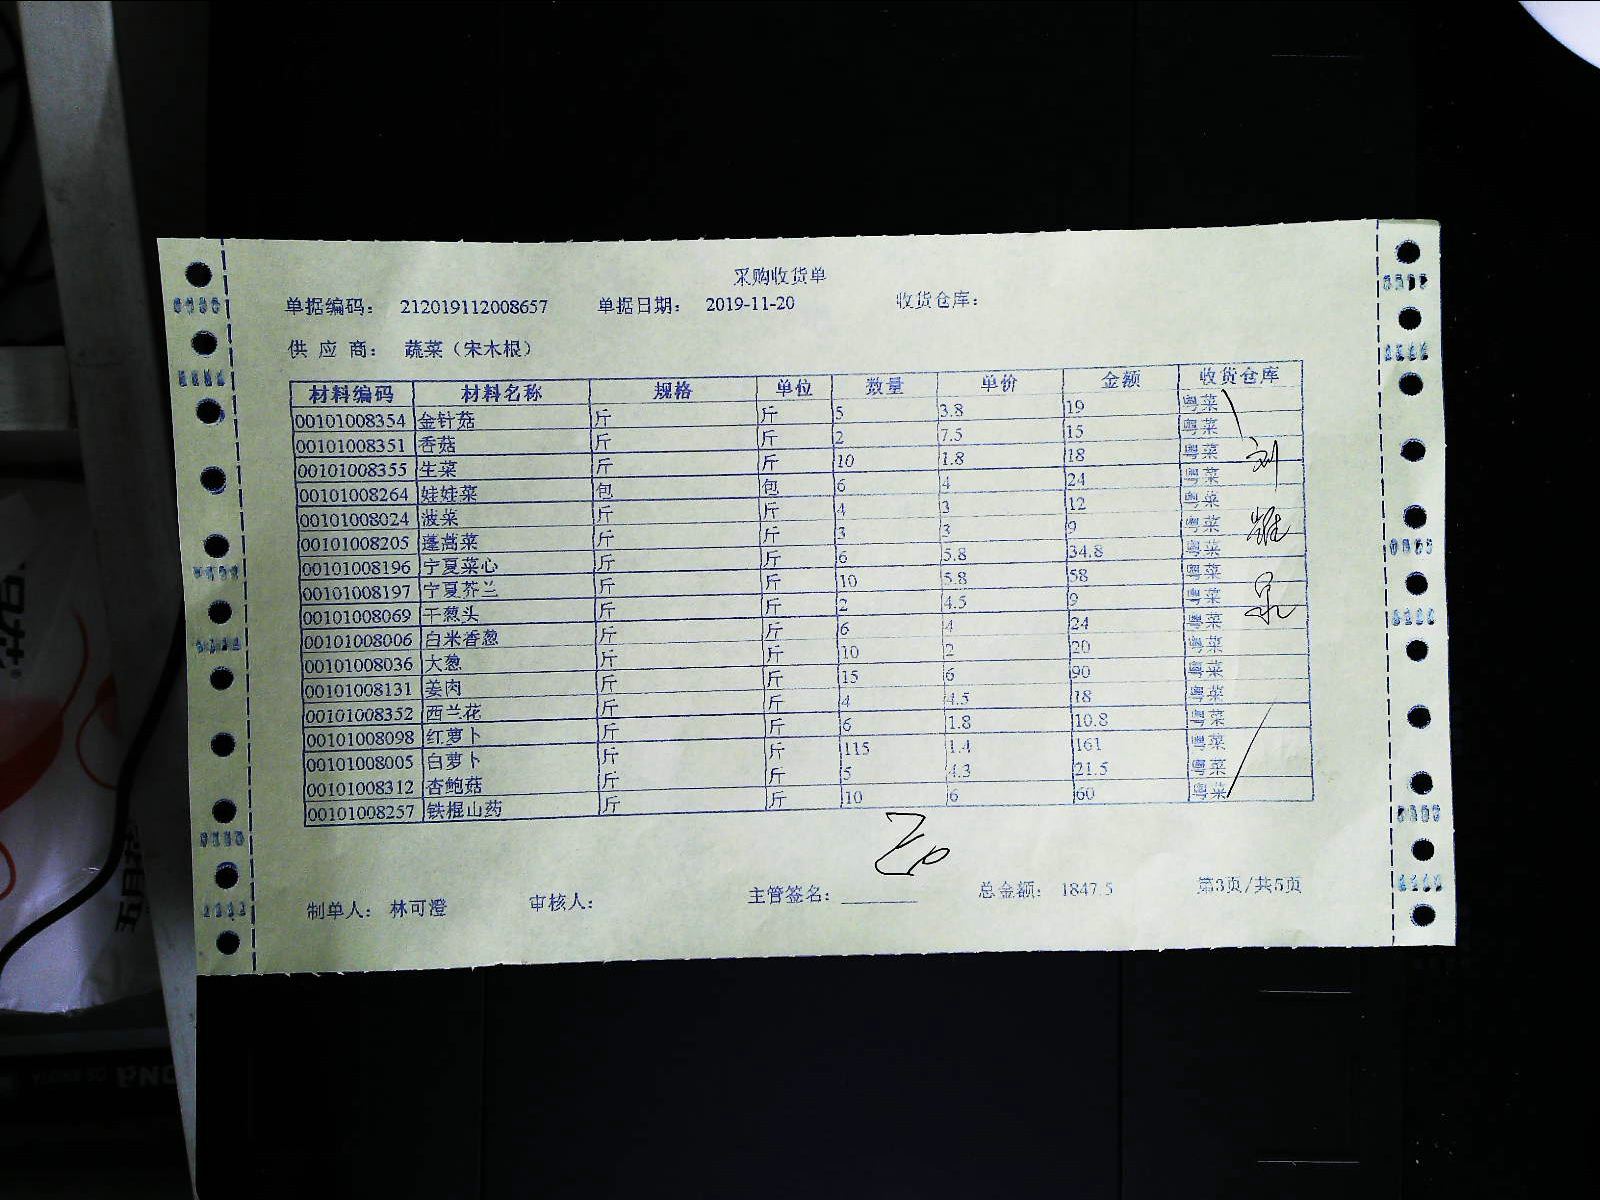 采购收货单
单据编码： 212019112008657 单据日期： 2019-11-20 收货仓库：
供 应 商： 蔬菜（宋木根）
材料编码 材料名称 规格 单位 数量 单价 金额 收货仓库
00101008354 金针菇 斤 斤 5 3.8 19 粤菜
00101008351 香菇 斤 斤 2 7.5 15 粤菜
00101008355 生菜 斤 斤 10 1.8 18 粤菜
00101008264 娃娃菜 包 包 6 4 24 粤菜
00101008024 波菜 斤 斤 4 3 12 粤菜
00101008205 蓬蒿菜 斤 斤 3 3 9 粤菜
00101008196 宁夏菜心 斤 斤 6 5.8 34.8 粤菜
00101008197 宁夏芥兰 斤 斤 10 5.8 58 粤菜
00101008069 干葱头 斤 斤 2 4.5 9 粤菜
00101008006 白米香葱 斤 斤 6 4 24 粤菜
00101008036 大葱 斤 斤 10 2 20 粤菜
00101008131 姜肉 斤 斤 15 6 90 粤菜
00101008352 西兰花 斤 斤 4 4.5 18 粤菜
00101008098 红萝卜 斤 斤 6 1.8 10.8 粤菜
00101008005 白萝卜 斤 斤 115 1.4 161 粤菜
00101008312 杏鲍菇 斤 斤 5 4.3 21.5 粤菜
00101008257 铁棍山药 斤 斤 10 6 60 粤菜
制单人： 林可澄 审核人： 主管签名： 总金额： 1847.5 第3页/共5页